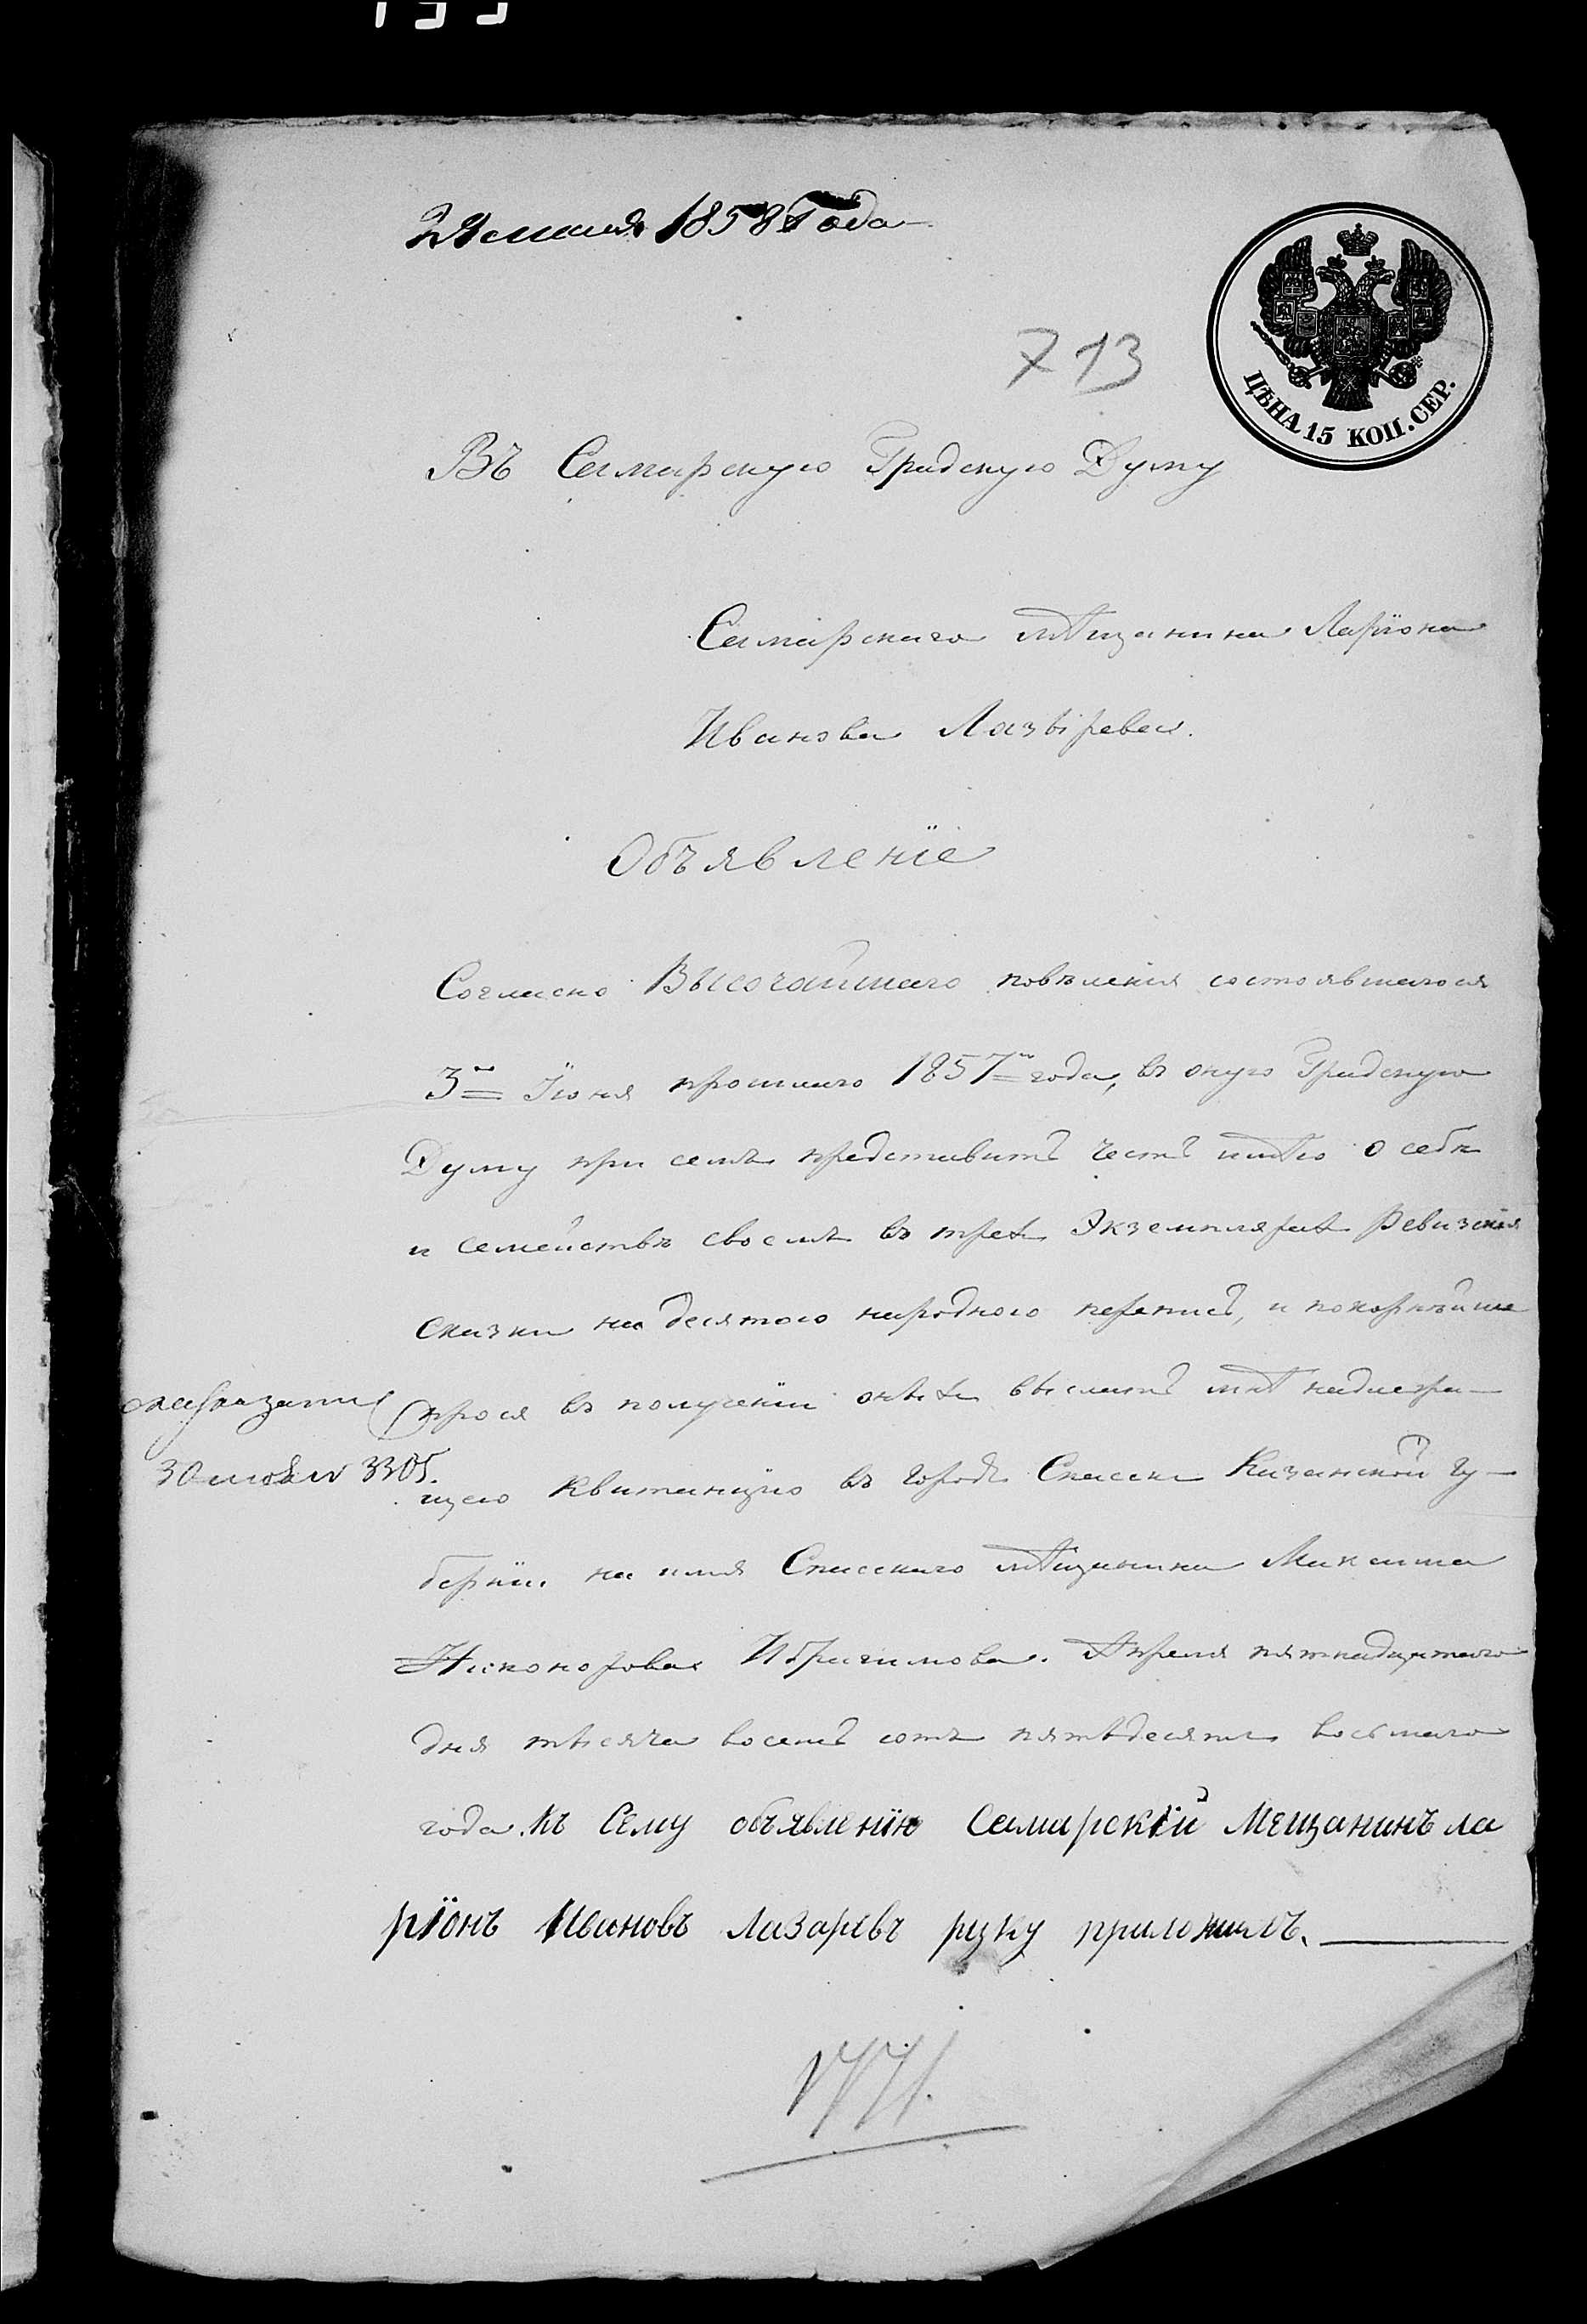 1858 Года
713
ЦѢНА 15 КОП. СЕР.
Въ Самарскую Градскую Думу
Самарскаго мѣщанина Ларіона
Иванова Лазырева.
Объявленіе
Согласно Высочайшаго повѣления состоявшагося
3го Іюня прошлаго 1857го года, въ оную Градскую
Думу при семъ представить честь имѣю о себѣ
и семействѣ своемъ въ трех экземплярах Ревизския
Сказки на десятою народною перепись, и покорнѣйше
прося въ полученіи оных выслать мнѣ надлежа-
щею Квитанцію въ городъ Спасскъ Казанской гу-
берніи. на имя Спасскаго мѣщанина Максима
Никонорова Ибрагимова. Апреля пятнадцатаго
дня тысяча восемь сотъ пятьдесятъ восьмаго
года. Къ Сему объявленію Самарскій Мещанинъ Ла
ріонъ Ивановъ Лазаревъ руку приложилъ.
30 июля № 3305.